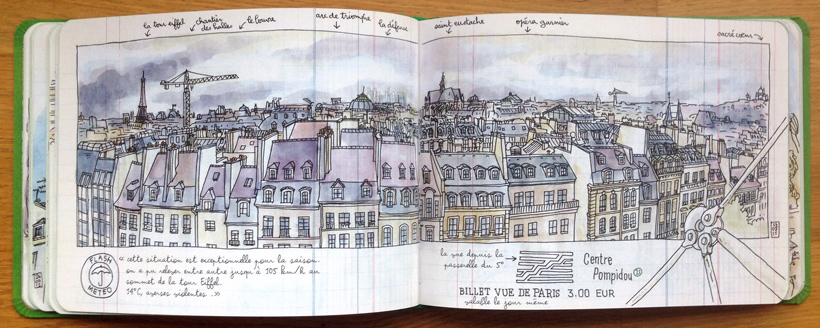 la tour eiffel
chantier
des halles
le louvre
arc de triomphe
la défense
saint eustache
opéra garnier
sacré cœur
FLASH
METEO
« cette situation est exceptionnelle pour la saison.
on a pu relever entre autre jusqu'à 105 km/h au
sommet de la tour Eiffel.
14°C, averses violentes. »
la vue depuis la
passerelle du 5e
Centre
Pompidou
BILLET VUE DE PARIS 3.00 EUR
valable le jour même